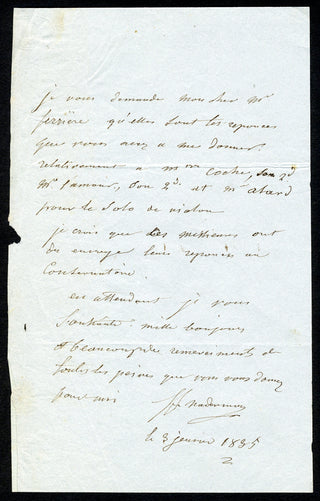 je vous demande mon cher Mr
ferrière qu'elles sont les reponces
que vous avez a me donner
relativement a mrs Coche, son 2d
Mr Jamour, son 2d. et Mr alard
pour le Solo de violon
je crois que les messieurs ont
du envoyé leurs reponces au
Conservatoire.
en attendant je vous
Souhaite mille bonjours
et beaucoup de remerciments de
toutes les peines que vous vous donnez
pour moi
le 3 janvier 1835